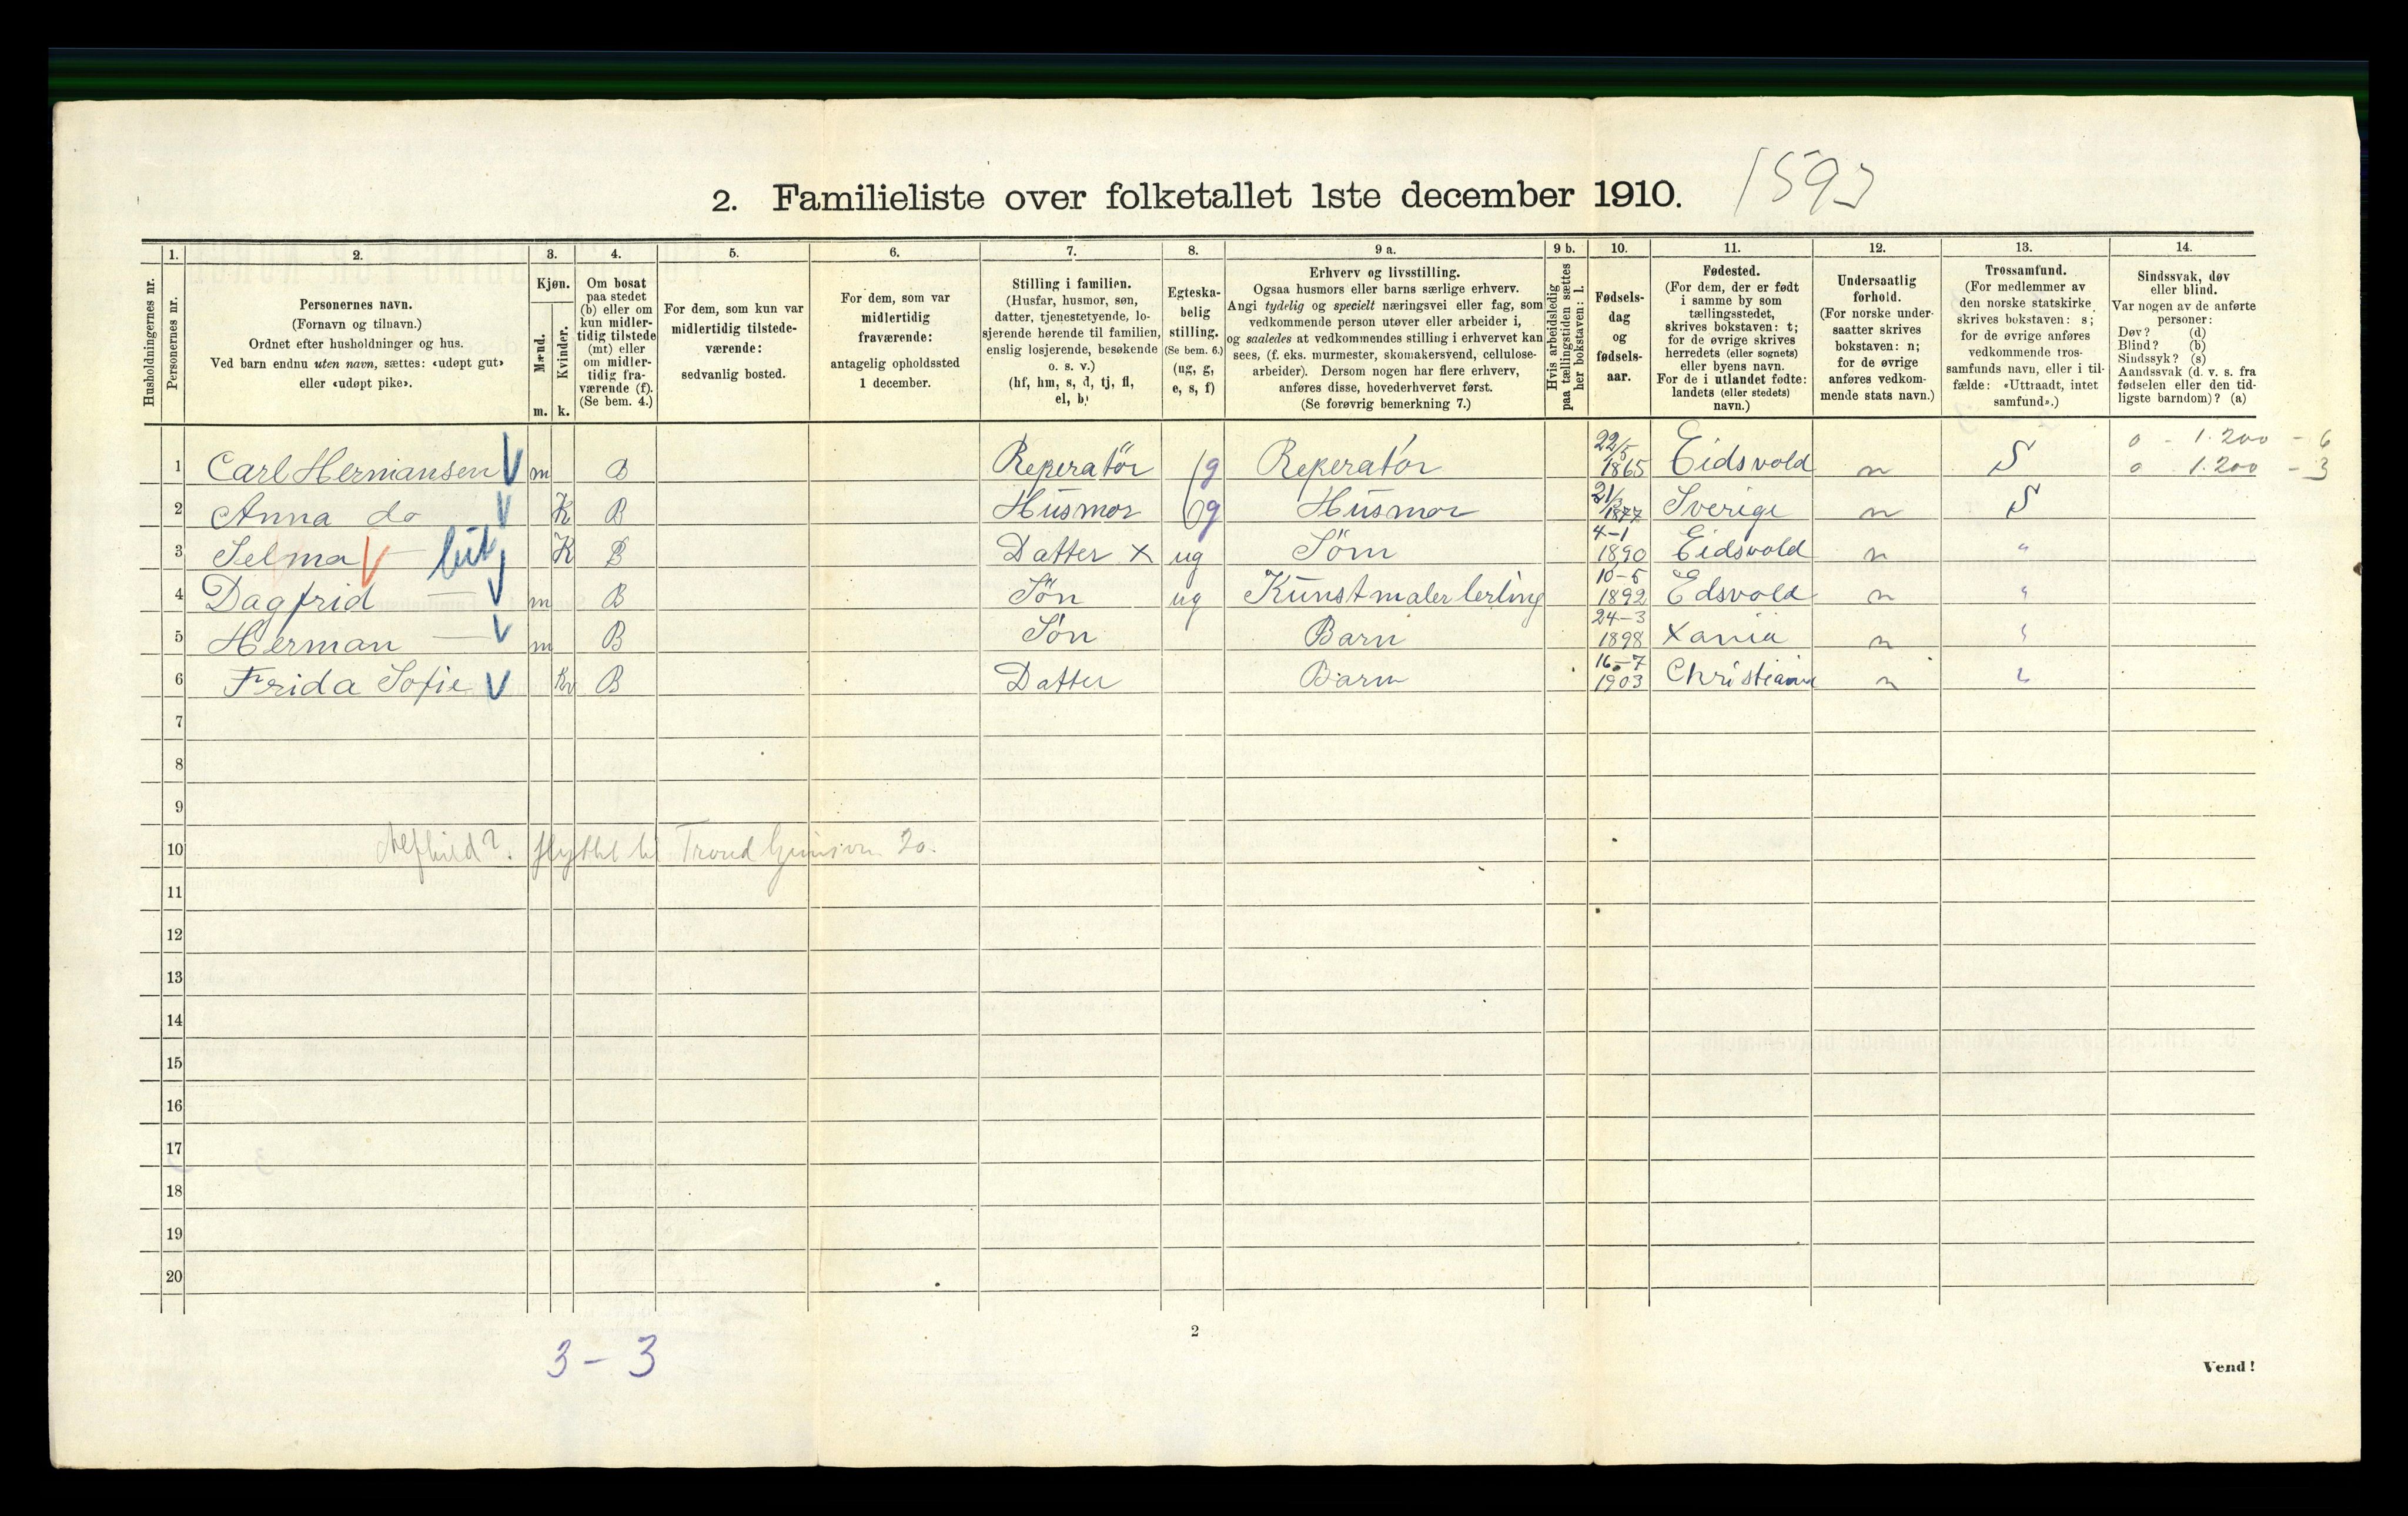 2. Familieliste over folketallet 1ste december 1910. 1593
1. 2. 3. 4. 5. 6. 7. 8. 9 a. 9 b. 10. 11. 12. 13. 14.
Husholdningernes nr.
Personernes nr.
Personernes navn.
(Fornavn og tilnavn.)
Ordnet efter husholdninger og hus.
Ved barn endnu uten navn, sættes: «udøpt gut»
eller «udøpt pike».
Kjøn.
Mænd.
Kvinder.
m. k.
Om bosat
paa stedet
(b) eller om
kun midler-
tidig tilstede
(mt) eller
om midler-
tidig fra-
værende (f).
(Se bem. 4.)
For dem, som kun var
midlertidig tilstede-
værende:
sedvanlig bosted.
For dem, som var
midlertidig
fraværende:
antagelig opholdssted
1 december.
Stilling i familien.
(Husfar, husmor, søn,
datter, tjenestetyende, lo-
sjerende hørende til familien,
enslig losjerende, besøkende
o. s. v.)
(hf, hm, s, d, tj, fl,
el, b)
Egteska-
belig
stilling.
(Se bem. 6.)
(ug, g,
e, s, f)
Erhverv og livsstilling.
Ogsaa husmors eller barns særlige erhverv.
Angi tydelig og specielt næringsvei eller fag, som
vedkommende person utøver eller arbeider i,
og saaledes at vedkommendes stilling i erhvervet kan
sees, (f. eks. murmester, skomakersvend, cellulose-
arbeider). Dersom nogen har flere erhverv,
anføres disse, hovederhvervet først.
(Se forøvrig bemerkning 7.)
Hvis arbeidsledig
paa tællingstiden sættes
her bokstaven: l.
Fødsels-
dag
og
fødsels-
aar.
Fødested.
(For dem, der er født
i samme by som
tællingsstedet,
skrives bokstaven: t;
for de øvrige skrives
herredets (eller sognets)
eller byens navn.
For de i utlandet fødte:
landets (eller stedets)
navn.)
Undersaatlig
forhold.
(For norske under-
saatter skrives
bokstaven: n;
for de øvrige
anføres vedkom-
mende stats navn.)
Trossamfund.
(For medlemmer av
den norske statskirke
skrives bokstaven: s;
for de øvrige anføres
vedkommende tros-
samfunds navn, eller i til-
fælde: «Uttraadt, intet
samfund».)
Sindssvak, døv
eller blind.
Var nogen av de anførte
personer:
Døv? (d)
Blind? (b)
Sindssyk? (s)
Aandssvak (d. v. s. fra
fødselen eller den tid-
ligste barndom)? (a)
1 Carl Hermansen V m B Reperatör g Reperatör 22/5 1865 Eidsvold n S 0 - 1.200 - 6
0 1.200 - 3
2 Anna do V K B Husmor g Husmor 21/3 1877 Sverige n S
3 Selma V — K B Datter x ug Söm 4-1 1890 Eidsvold n "
4 Dagfrid — V m B Sön ug Kunstmaler lerling 10-5 1892 Edsvold n "
5 Herman — V m B Sön Barn 24-3 1898 Xania n "
6 Frida Sofie V Kv B Datter Barn 16-7 1903 Christiania n "
7
8
9
10 flyttet til Trond
11
12
13
14
15
16
17
18
19
20
2
3 - 3
Vend!